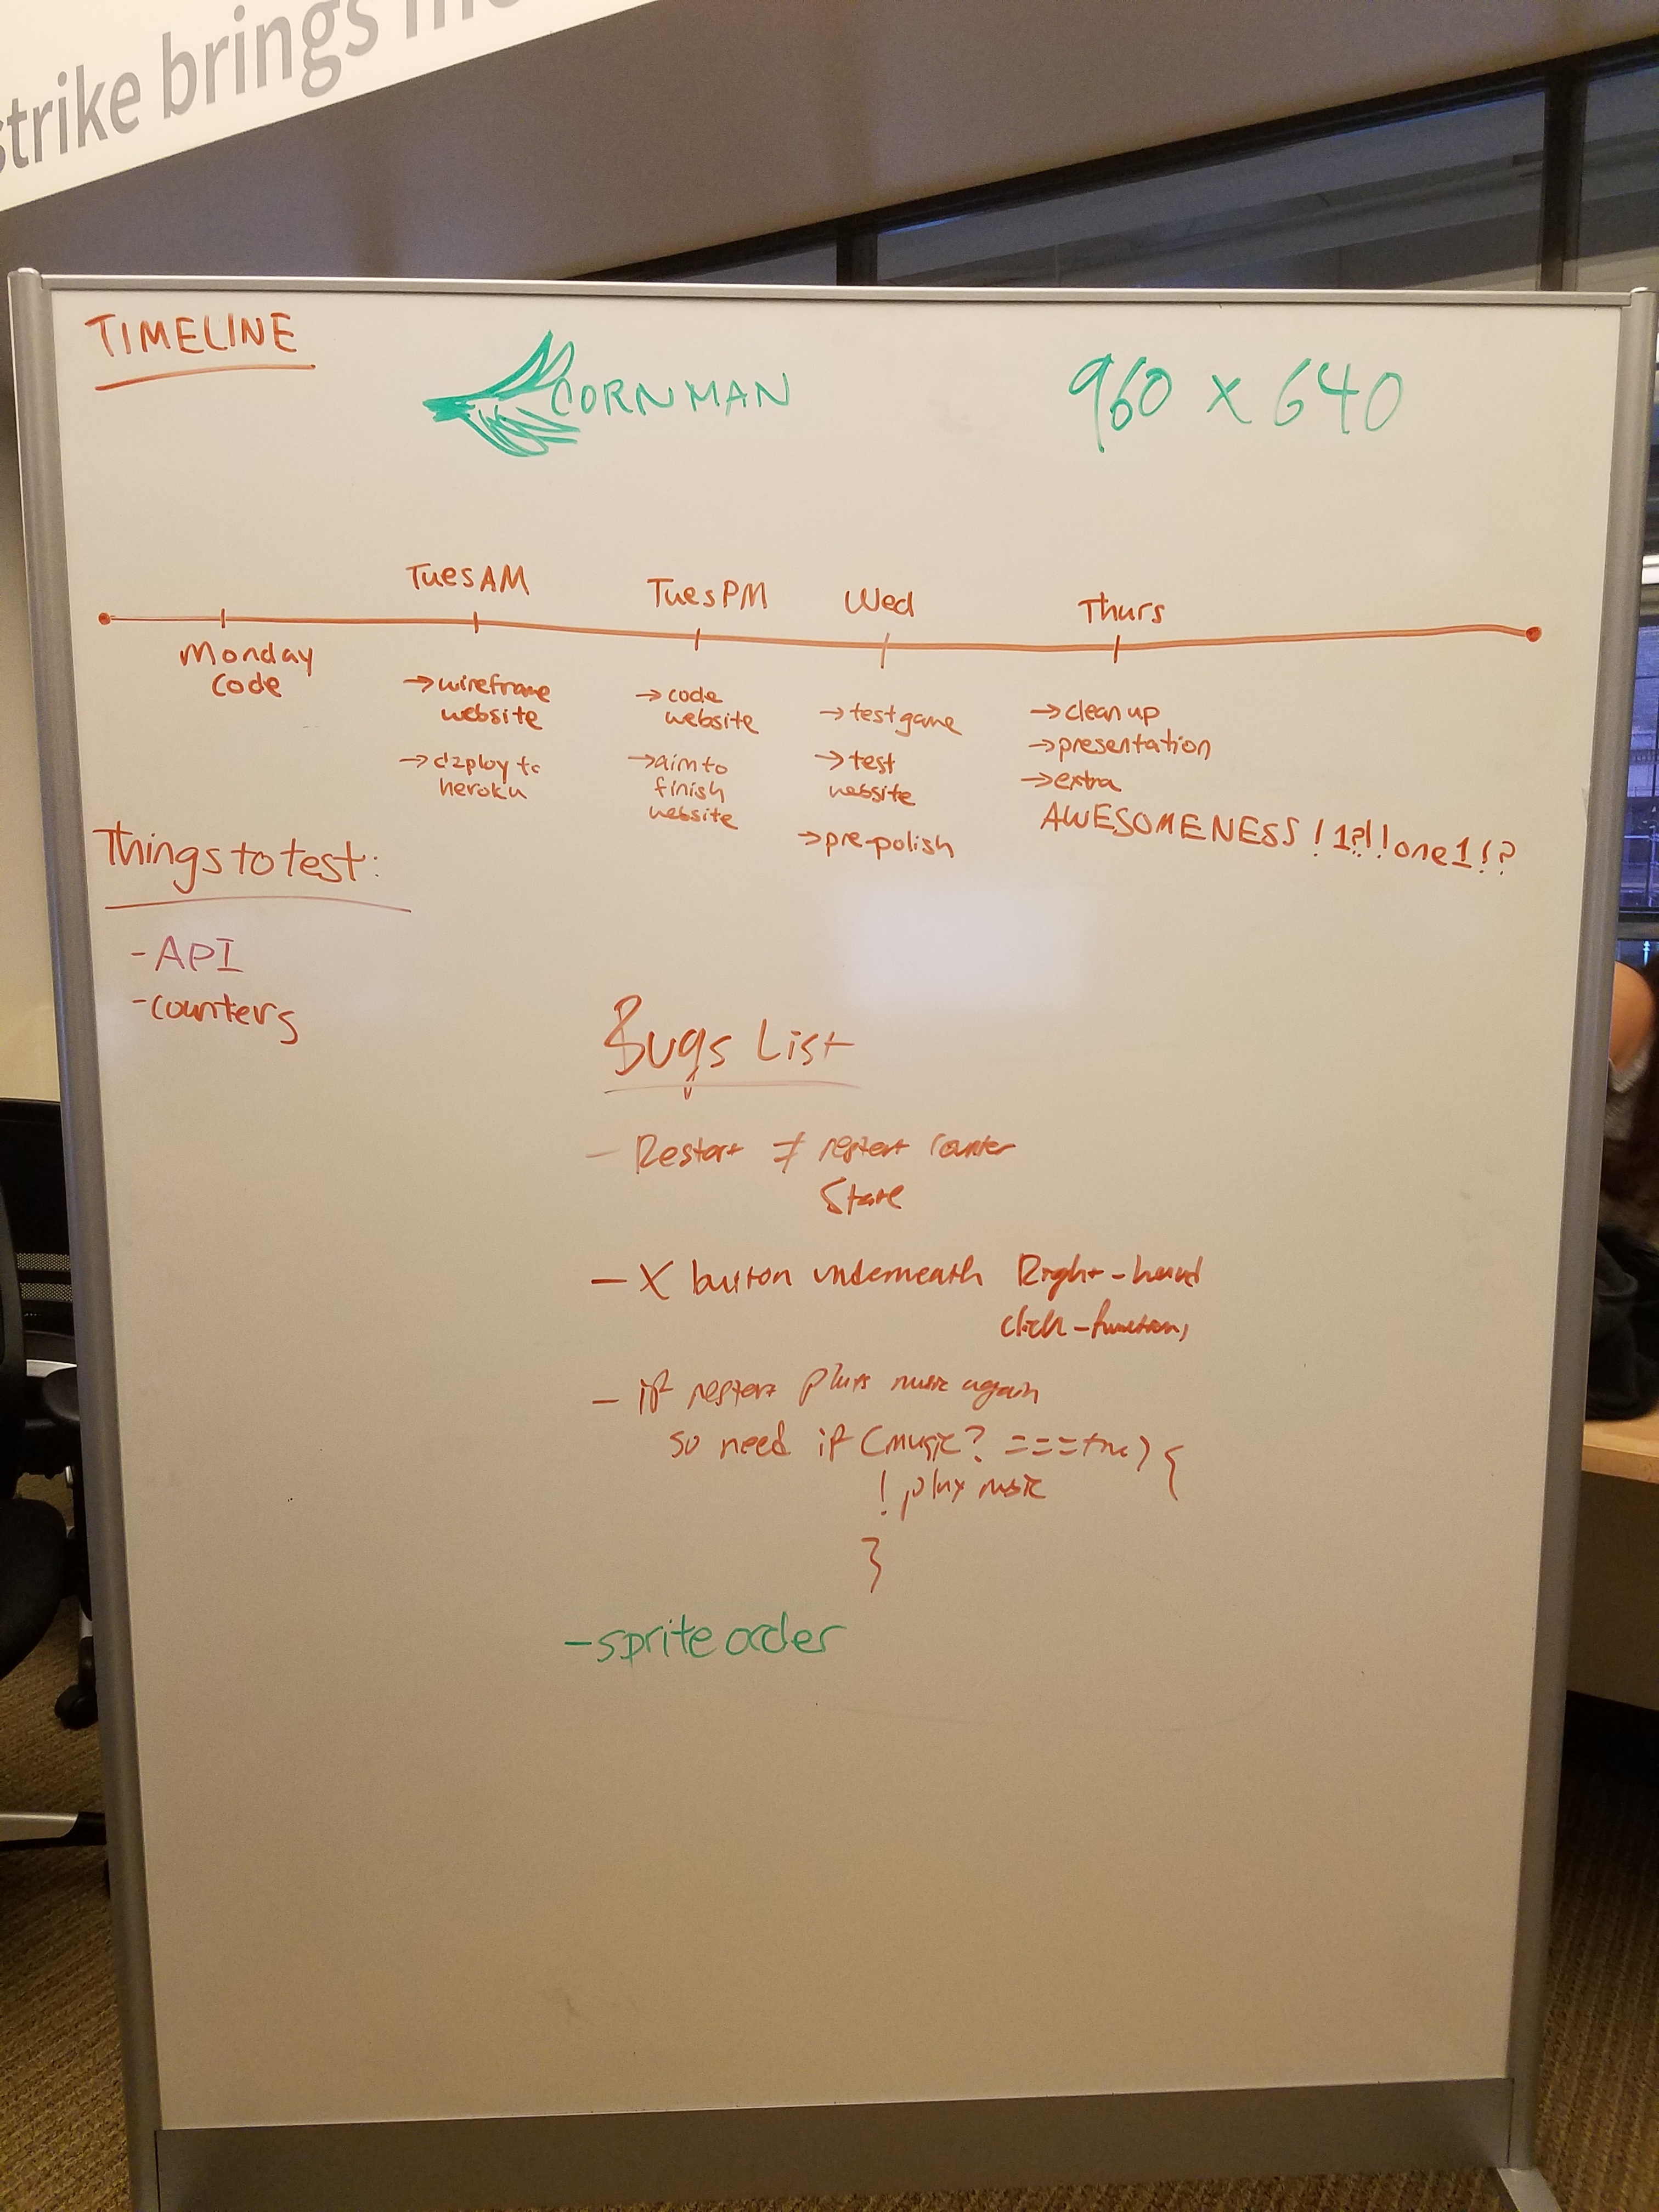 strike brings
TIMELINE
CORNMAN
960 x 640
Tues AM
Tues PM
Wed
Thurs
Monday
Code
→wireframe
website
→deploy to
heroku
→code
website
→aim to
finish
website
→test game
→test
website
→pre-polish
→clean up
→presentation
→extra
AWESOMENESS!1?!!one1!?
Things to test:
-API
-counters
Bugs List
- Restart ≠ restart counter
State
- X button underneath Right-hand
click-function,
- if restart plays music again
so need if (music? ===true) {
! play music
}
-sprite order